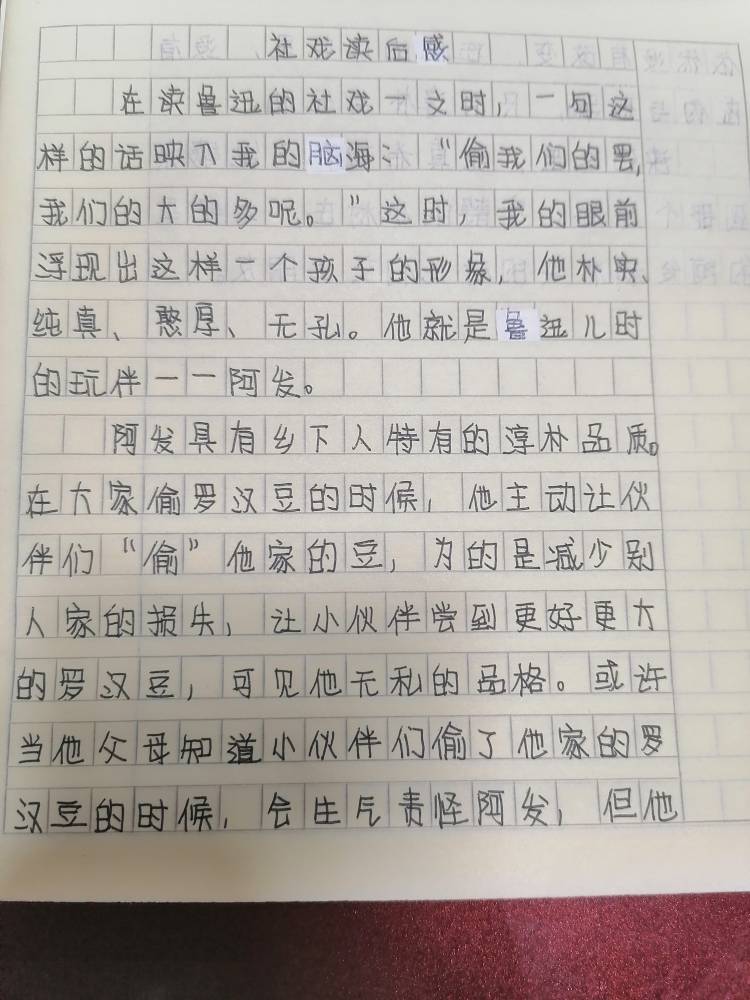 社戏读后感
在读鲁迅的社戏一文时，一句这
样的话映入我的脑海：“偷我们的罢，
我们的大的多呢。”这时，我的眼前
浮现出这样一个孩子的形象，他朴实、
纯真、憨厚、无私。他就是鲁迅儿时
的玩伴一一阿发。
阿发具有乡下人特有的淳朴品质。
在大家偷罗汉豆的时候，他主动让伙
伴们“偷”他家的豆，为的是减少别
人家的损失，让小伙伴尝到更好更大
的罗汉豆，可见他无私的品格。或许
当他父母知道小伙伴们偷了他家的罗
汉豆的时候，会生气责怪阿发，但他